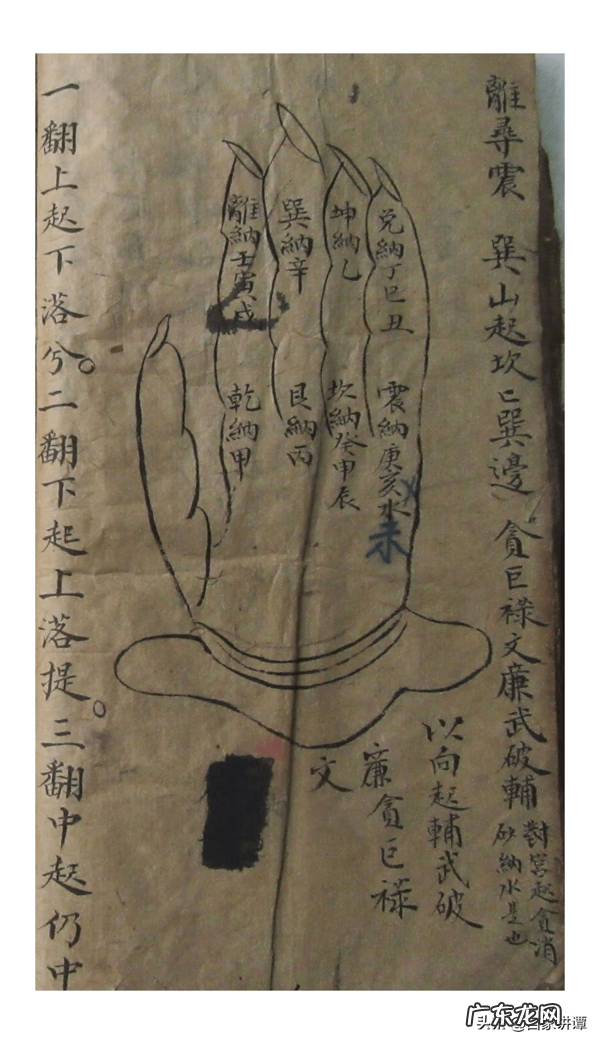 離尋震 巽山起坎匕巽邊 貪巨祿文廉武破輔
對宮起貪消
砂納水是也
以向起輔武破
廉貪巨祿
文
兌納丁巳丑
坤納乙
巽納辛
離納壬寅戌
震納庚亥水
未
坎納癸甲辰
艮納丙
乾納甲
一翻上起下落兮。二翻下起上落提。三翻中起仍中
广东龙网